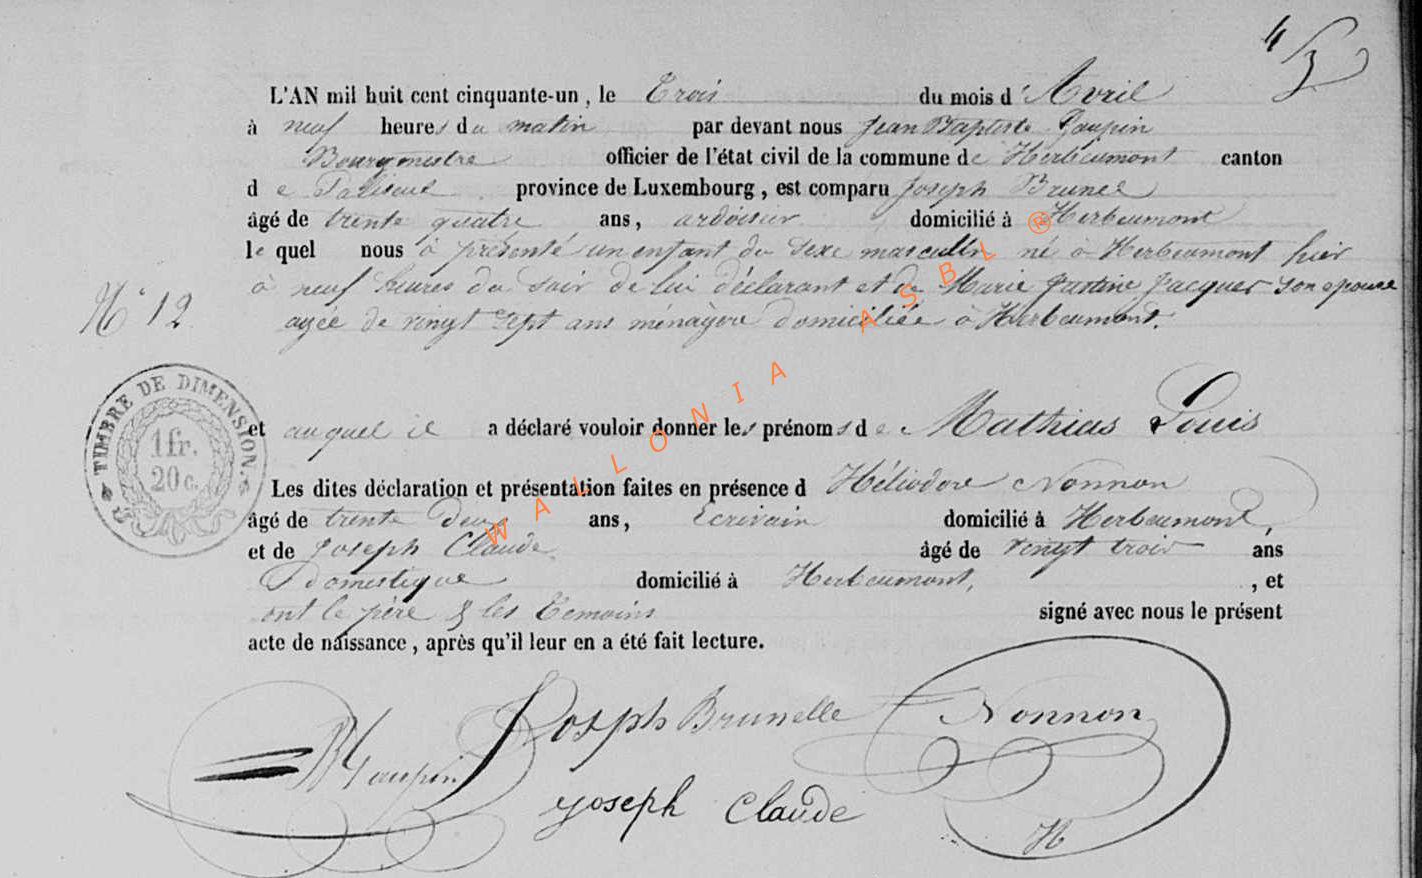 4/3
L'AN mil huit cent cinquante-un, le Trois du mois d'Avril
à neuf heures du matin par devant nous Jean Baptiste Gaupin
Bourgmestre officier de l'état civil de la commune de Herbeumont canton
de Paliseul province de Luxembourg, est comparu Joseph Brunel
âgé de trente quatre ans, ardoisier domicilié à Herbeumont
lequel nous à présenté un enfant du sexe masculin né à Herbeumont hier
à neuf heures du soir de lui déclarant et de Marie Justine Jacques son epouse
N° 12
agée de vingt sept ans ménagère domiciliée à Herbeumont.
TIMBRE DE DIMENSION.
1 fr.
20 c.
et auquel il a déclaré vouloir donner les prénoms de Mathias Louis
Les dites déclaration et présentation faites en présence d Héliodore Nonnon
âgé de trente Deux ans, Ecrivain domicilié à Herbeumont,
et de Joseph Claude âgé de vingt trois ans
Domestique domicilié à Herbeumont, , et
ont le père & les Temoins signé avec nous le présent
acte de naissance, après qu'il leur en a été fait lecture.
Joseph Brunelle Nonnon
JB Gaupin
Joseph Claude
H
WALLONIA ASBL ®